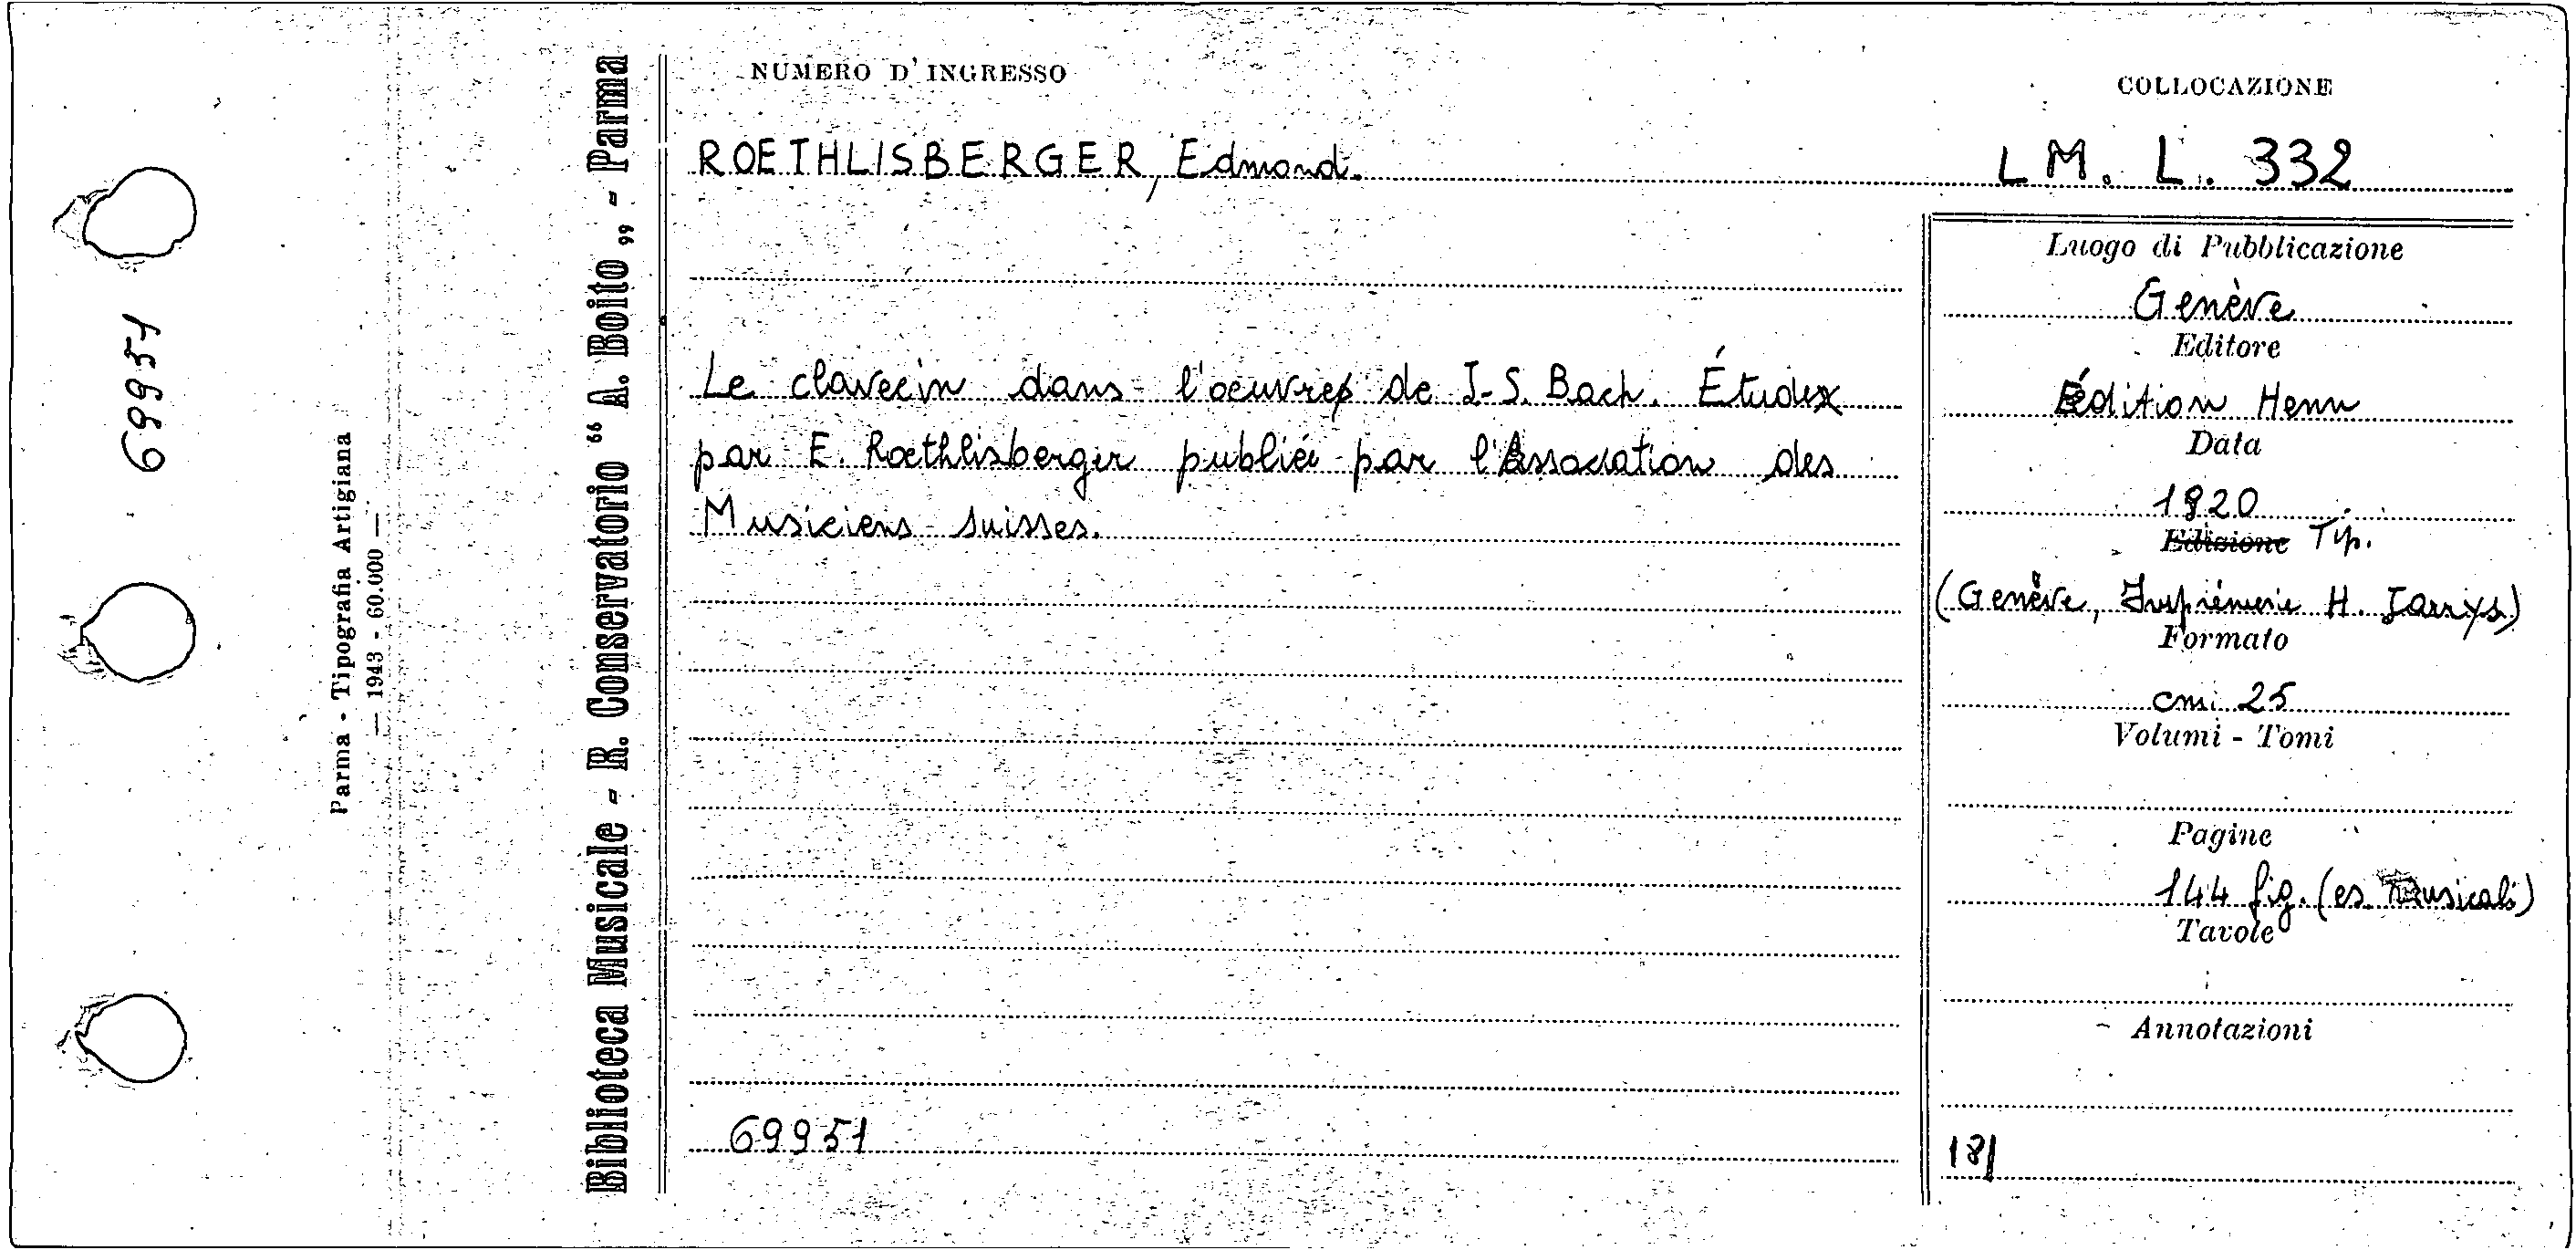 NUMERO D'INGRESSO
COLLOCAZIONE
ROETHLISBERGER, Edmond.
LM. L. 332
Le clavecin dans l'oeuvres de J.S. Bach. Études
par E. Roethlisberger publiée par l'Association des
Musiciens suisses.
69951
Luogo di Pubblicazione
Genève
Editore
Édition Henn
Data
1920
Edizione Tip.
(Genève, Imprimerie H. Jarrys)
Formato
cm. 25
Volumi - Tomi
Pagine
144 fig. (es. musicali)
Tavole
Annotazioni
181
Biblioteca Musicale - R. Conservatorio “ A. Boito „ - Parma
Parma - Tipografia Artigiana
— 1943 - 60.000 —
69951